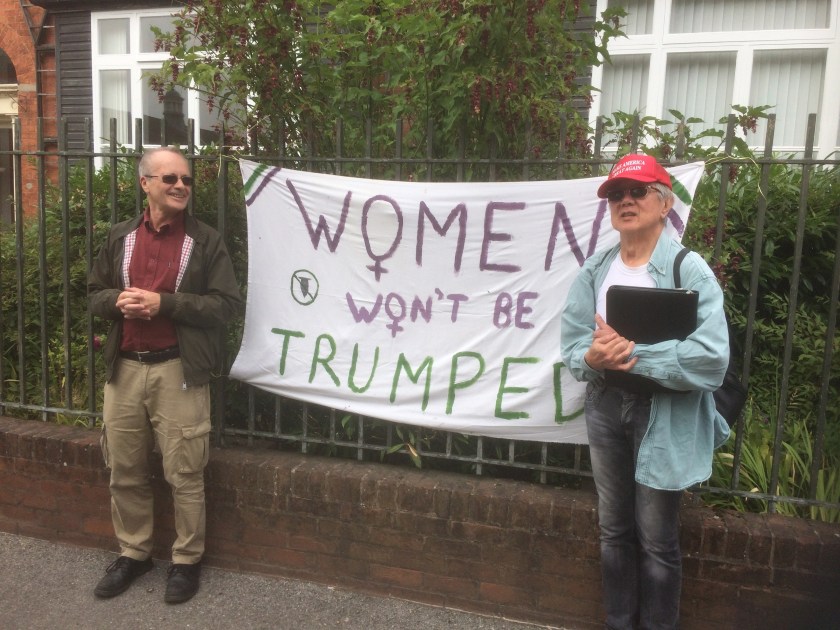 WOMEN
WON'T BE
TRUMPED
AMERICA
AGAIN